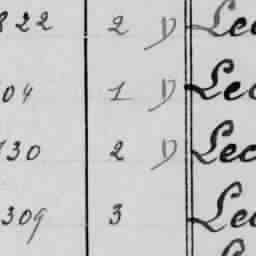 822 2 D Lec
04 1 D Lec
730 2 D Lec
309 3 Lec